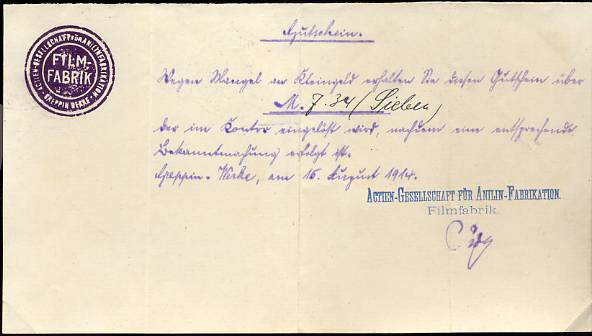 Gutschein.
ACTIEN-GESELLSCHAFT FÜR ANILIN-FABRIKATION
FILM-
FABRIK
GREPPIN WERKE
Wegen Mangel an Kleingeld erhalten Sie diesen Gutschein über
M. 7.34 / Sieben /
der im Kontor eingelöst wird, nachdem eine entsprechende
Bekanntmachung erfolgt ist.
Greppin-Werke, am 15. August 1914.
ACTIEN-GESELLSCHAFT FÜR ANILIN-FABRIKATION.
Filmfabrik.